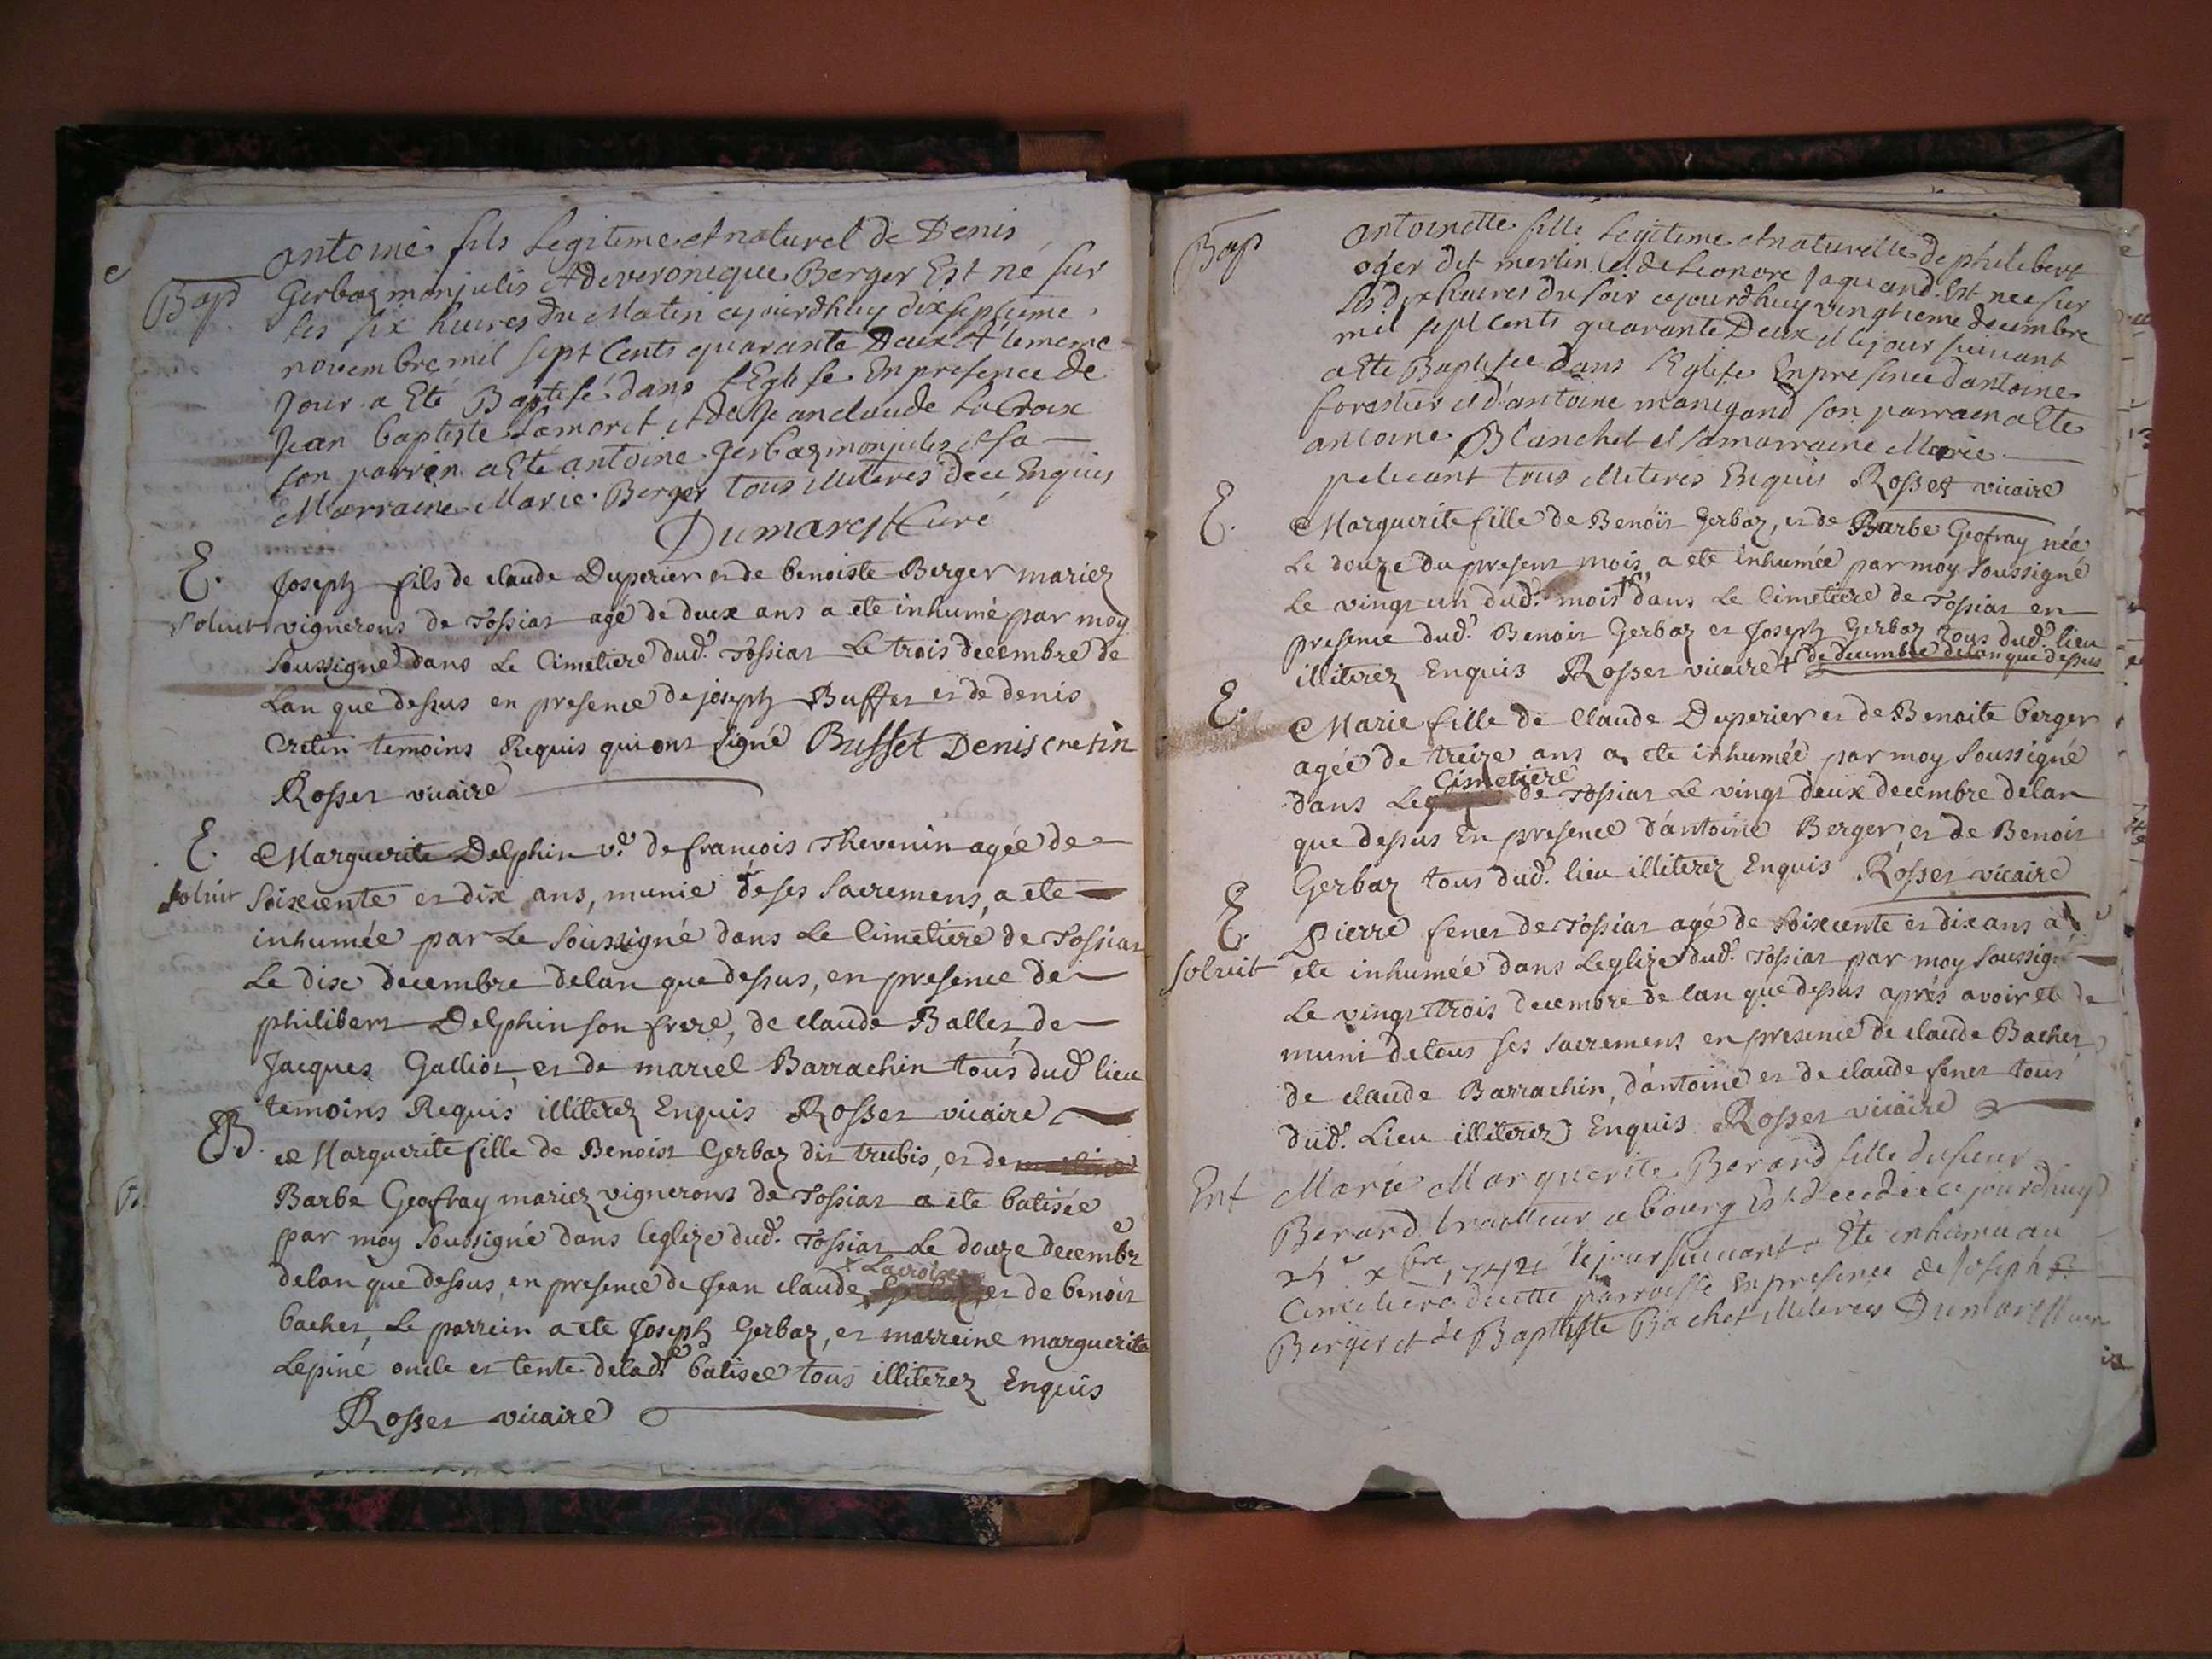 antoine fils Legiteme et naturel de Denis
Bap Gerbaz monjulis et de veroneque Berger Est né sur
les six heures du Matin cejourdhuy dixseptieme
novembre mil sept Cents quarante Deux et le meme
jour a Eté Baptisé dans l'Eglise En presence de
Jean baptiste Lamoret et de Jean claude La Croix
son parrin a Eté antoine gerbaz monjulis et sa
Marraine Marie Berger tous illiteres de ce Enquis
Dumarest Curé
E. Joseph fils de claude Duperier et de benoiste Berger mariez
soluit vignerons de Tossiat agé de deux ans a ete inhumé par moy
soussigné dans Le Cimetiere dud. Tossiat Le trois decembre de
Lan que dessus en presence de joseph Buffet et de denis
Cretin temoins Requis qui ont signé Buffet Denis cretin
Rosset vicaire
E. Marguerite Delphin ve. de francois Thevenin agée de
soluit soixcente et dix ans, munie de ses sacremens, a ete
inhumée par Le soussigné dans Le Cimetiere de Tossiat
Le dix decembre de lan que dessus, en presence de
philibert Delphin son frere, de claude Ballet, de
Jacques Galliot, et de marcel Barrachin tous dud. lieu
temoins Requis illiterez Enquis Rosset vicaire
B. Marguerite fille de Benoist Gerbaz dit trubis, et de
Barbe Geofray mariez vignerons de Tossiat a ete batisée
par moy soussigné dans leglize dud. Tossiat Le douze decembre
Lacroix
de lan que dessus, en presence de Jean claude et de benoit
bachet, Le parrein a ete Joseph Gerbaz, et marreine marguerite
Lepine oncle et tente de lad. batisée tous illiterez Enquis
Rosset vicaire
Bap antoinette fille Legiteme et naturelle de phelibert
oger dit merlin et de Leonore Jaquand Est nee sur
les dix heures du soir cejourdhuy vingtieme decembre
mil sept Cents quarante Deux et le jour suivant
a Ete Baptisee dans l'Eglise En presence d'antoine
forestier et d'antoine manigand son parrain a Ete
antoine Blanchet et sa marraine Marie
pelicant tous illiteres Enquis Rosset vicaire
E. Marguerite fille de Benoit Gerbaz, et de Barbe Geofray née
Le douze du present mois, a ete inhumée par moy soussigné
Le vingt un dud. mois + dans Le Cimetiere de Tossiat en
presence dud. Benoit Gerbaz et Joseph Gerbaz tous dud. lieu
illiterez Enquis Rosset vicaire + de decembre de lan que dessus
E. Marie fille de Claude Duperier et de Benoite berger
agée de treize ans a ete inhumée par moy soussigné
Cimetiere
dans Le de Tossiat Le vingt deux decembre de lan
que dessus En presence d'antoine Berger et de Benoit
Gerbaz tous dud. lieu illiterez Enquis Rosset vicaire
E. Pierre fenet de Tossiat agé de soixcente et dix ans a
soluit ete inhumée dans Leglize dud. Tossiat par moy soussigné
Le vingt trois decembre de lan que dessus aprés avoir ete
muni de tous ses sacremens en presence de claude Bachet
de claude Barrachin, d'antoine et de claude fenet tous
dud. Lieu illiterez Enquis Rosset vicaire
Ent Marie Marguerite Berard fille du sieur
Berard traitteur a bourg Est decedée cejourdhuy
xbre 1742 le jour suivant a Ete inhumee au
Cimetiere de cette parroisse En presence de Joseph
Berger et de Baptiste Bachet illiteres Dumarest